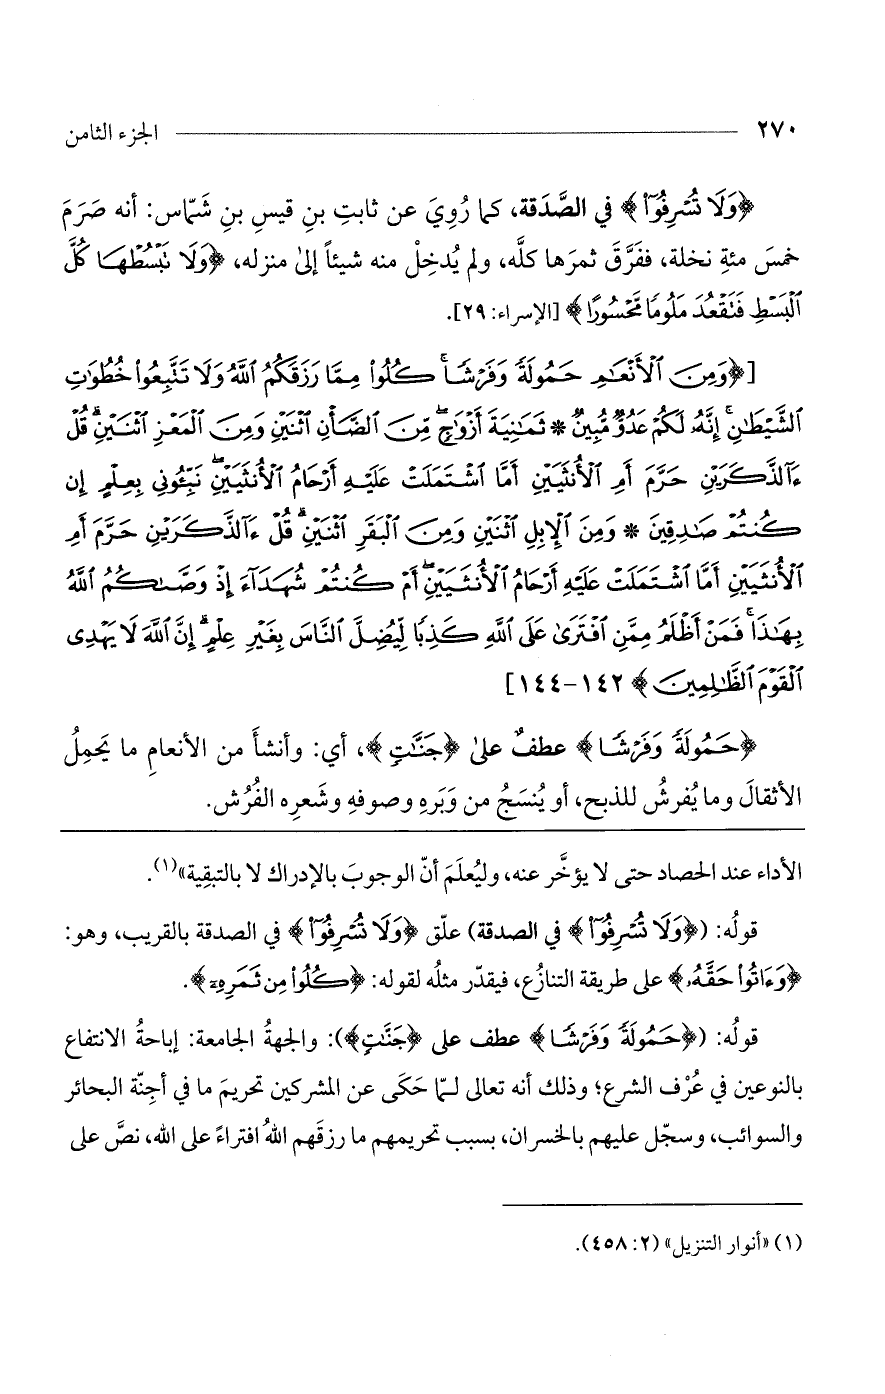 ٢٧٠ الجزء الثامن
﴿وَلَا تُسْرِفُوٓا۟﴾ في الصَّدَقة، كما رُوِيَ عن ثابتِ بنِ قيسِ بنِ شَمّاس: أنه صَرَمَ
خمسَ مئةِ نخلة، ففَرَّقَ ثمرَها كلَّه، ولم يُدخِلْ منه شيئاً إلىٰ منزله، ﴿وَلَا تَبْسُطْهَا كُلَّ
ٱلْبَسْطِ فَتَقْعُدَ مَلُومًا مَّحْسُورًا﴾ [الإسراء: ٢٩].
[﴿وَمِنَ ٱلْأَنْعَـٰمِ حَمُولَةً وَفَرْشًا ۚ كُلُوا۟ مِمَّا رَزَقَكُمُ ٱللَّهُ وَلَا تَتَّبِعُوا۟ خُطُوَٰتِ
ٱلشَّيْطَـٰنِ ۚ إِنَّهُۥ لَكُمْ عَدُوٌّ مُّبِينٌ * ثَمَـٰنِيَةَ أَزْوَٰجٍ ۖ مِّنَ ٱلضَّأْنِ ٱثْنَيْنِ وَمِنَ ٱلْمَعْزِ ٱثْنَيْنِ ۗ قُلْ
ءَآلذَّكَرَيْنِ حَرَّمَ أَمِ ٱلْأُنثَيَيْنِ أَمَّا ٱشْتَمَلَتْ عَلَيْهِ أَرْحَامُ ٱلْأُنثَيَيْنِ ۖ نَبِّـُٔونِى بِعِلْمٍ إِن
كُنتُمْ صَـٰدِقِينَ * وَمِنَ ٱلْإِبِلِ ٱثْنَيْنِ وَمِنَ ٱلْبَقَرِ ٱثْنَيْنِ ۗ قُلْ ءَآلذَّكَرَيْنِ حَرَّمَ أَمِ
ٱلْأُنثَيَيْنِ أَمَّا ٱشْتَمَلَتْ عَلَيْهِ أَرْحَامُ ٱلْأُنثَيَيْنِ ۖ أَمْ كُنتُمْ شُهَدَآءَ إِذْ وَصَّىٰكُمُ ٱللَّهُ
بِهَـٰذَا ۚ فَمَنْ أَظْلَمُ مِمَّنِ ٱفْتَرَىٰ عَلَى ٱللَّهِ كَذِبًا لِّيُضِلَّ ٱلنَّاسَ بِغَيْرِ عِلْمٍ ۗ إِنَّ ٱللَّهَ لَا يَهْدِى
ٱلْقَوْمَ ٱلظَّـٰلِمِينَ﴾ ١٤٢-١٤٤]
﴿حَمُولَةً وَفَرْشًا﴾ عطفٌ علىٰ ﴿جَنَّـٰتٍ﴾، أي: وأنشأَ من الأنعامِ ما يَحمِلُ
الأثقالَ وما يُفرشُ للذبح، أو يُنسَجُ من وَبَرِه وصوفهِ وشَعرِه الفُرُش.
الأداء عند الحصاد حتى لا يؤخَّر عنه، وليُعلَمَ أنّ الوجوبَ بالإدراك لا بالتبقِية»(١).
قولُه: (﴿وَلَا تُسْرِفُوٓا۟﴾ في الصدقة) علّق ﴿وَلَا تُسْرِفُوٓا۟﴾ في الصدقة بالقريب، وهو:
﴿وَءَاتُوا۟ حَقَّهُۥ﴾ على طريقة التنازُع، فيقدّر مثلُه لقوله: ﴿كُلُوا۟ مِن ثَمَرِهِۦٓ﴾.
قولُه: (﴿حَمُولَةً وَفَرْشًا﴾ عطف على ﴿جَنَّـٰتٍ﴾): والجهةُ الجامعة: إباحةُ الانتفاع
بالنوعين في عُرْف الشرع؛ وذلك أنه تعالى لمّا حَكَى عن المشركين تحريمَ ما في أجِنّة البحائر
والسوائب، وسجّل عليهم بالخسران، بسبب تحريمهم ما رزقَهم اللهُ افتراءً على الله، نصَّ على
(١) «أنوار التنزيل» (٢: ٤٥٨).